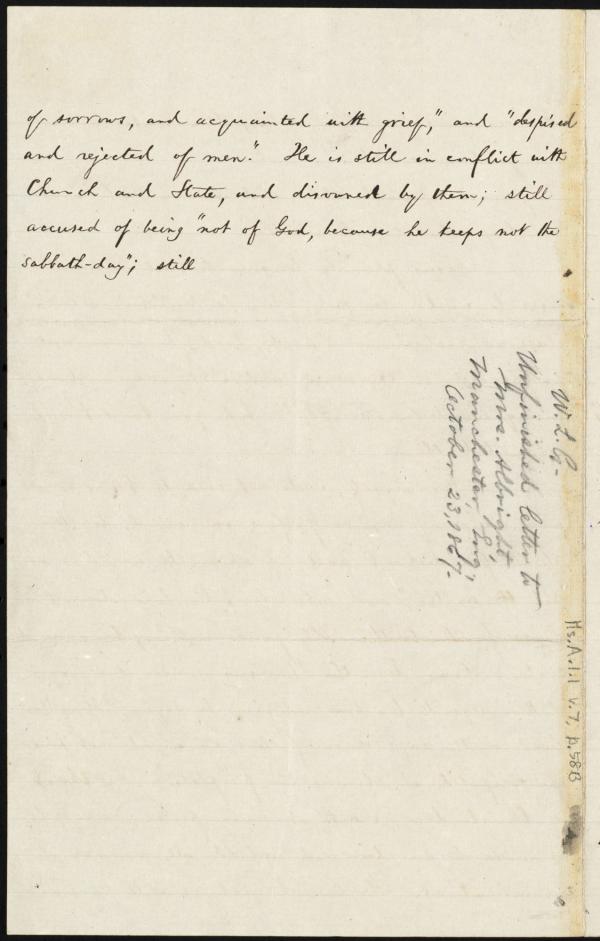 of sorrows, and acquainted with grief," and "despised
and rejected of men." He is still in conflict with
Church and State, and disowned by them; still
accused of being "not of God, because he keeps not the
sabbath-day"; still
W. L. G.
Unfinished letter to
Mrs. Albright,
Manchester, Eng.,
October 23, 1867.
Ms. A. 1. 1 v. 7, p. 58B